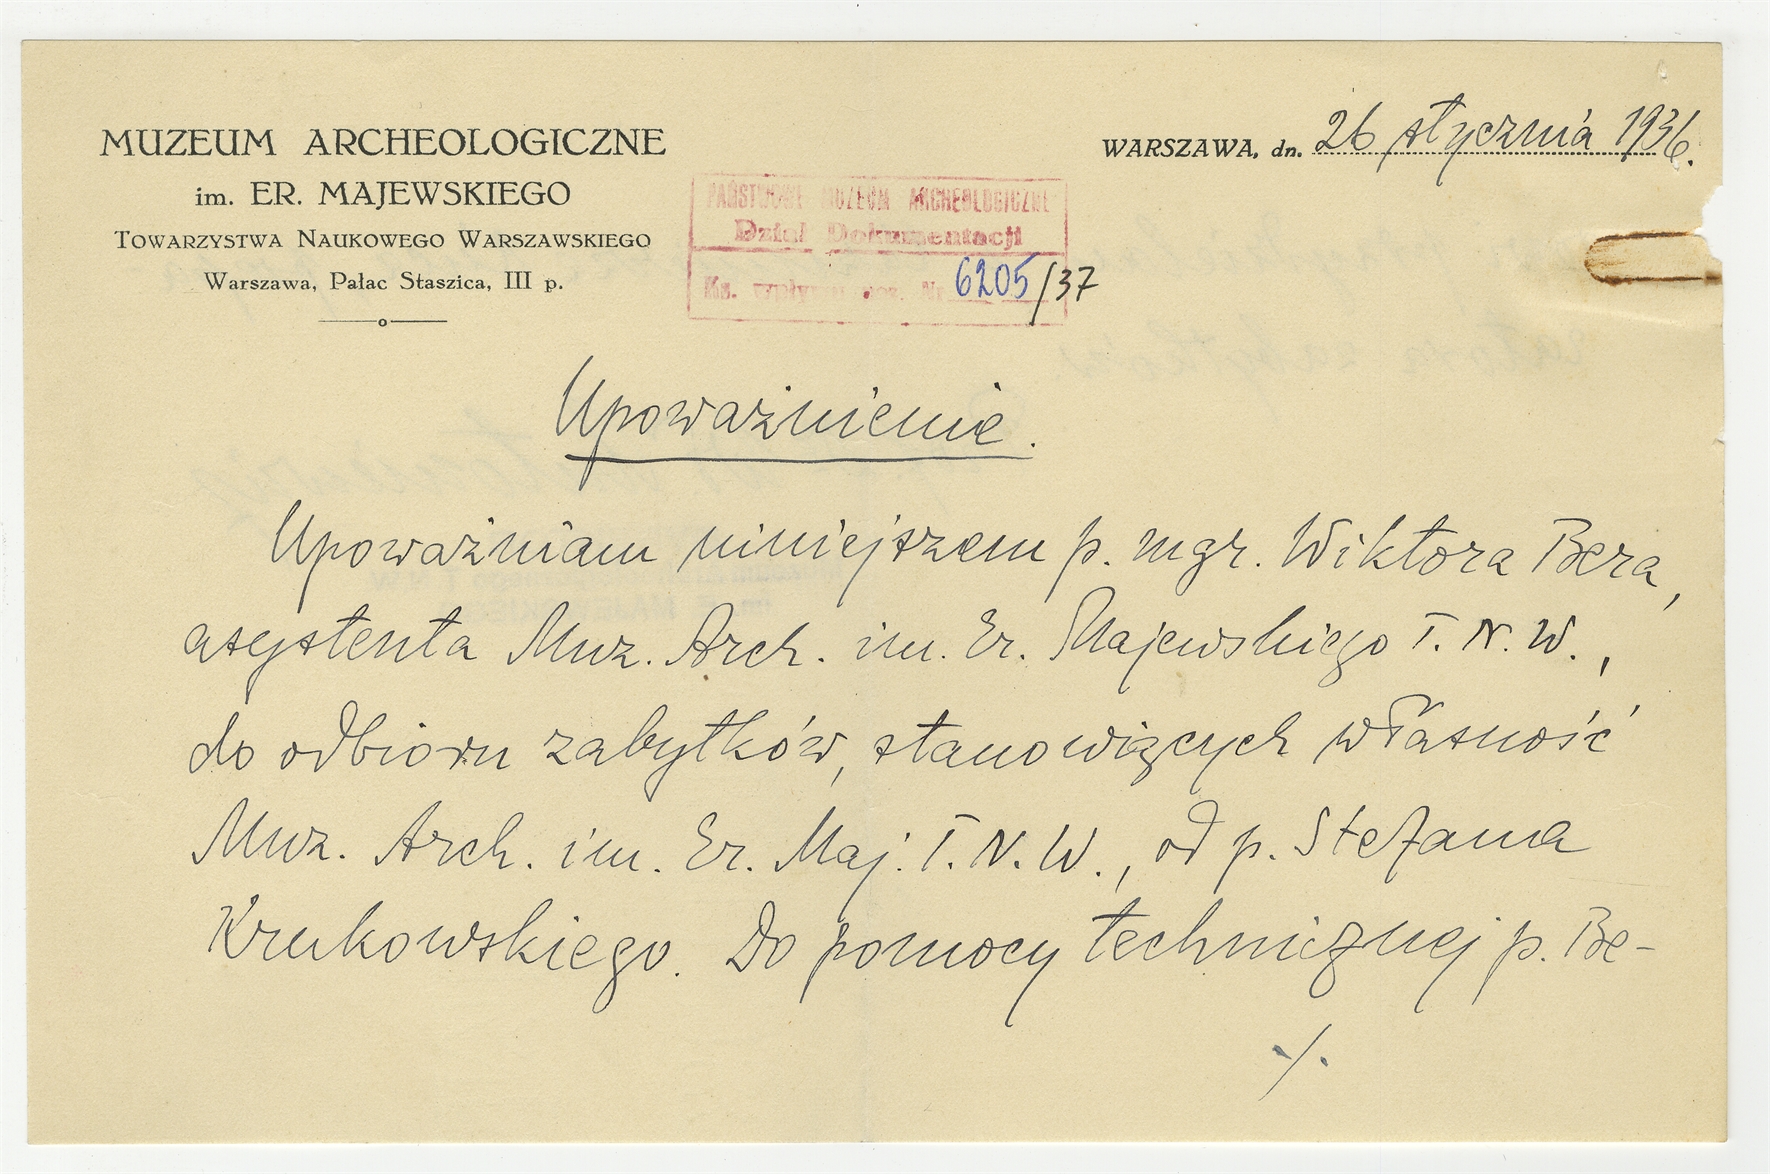 MUZEUM ARCHEOLOGICZNE
im. ER. MAJEWSKIEGO
TOWARZYSTWA NAUKOWEGO WARSZAWSKIEGO
Warszawa, Pałac Staszica, III p.
WARSZAWA, dn. 26 stycznia 1936.
PAŃSTWOWE MUZEUM ARCHEOLOGICZNE
Dział Dokumentacji
Ks. wpływu poz. Nr 6205/37
Upoważnienie.
Upoważniam niniejszem p. mgr. Wiktora Bera,
asystenta Muz. Arch. im. Er. Majewskiego T. N. W.,
do odbioru zabytków, stanowiących własność
Muz. Arch. im. Er. Maj. T. N. W., od p. Stefana
Krukowskiego. Do pomocy technicznej p. Be-
./.